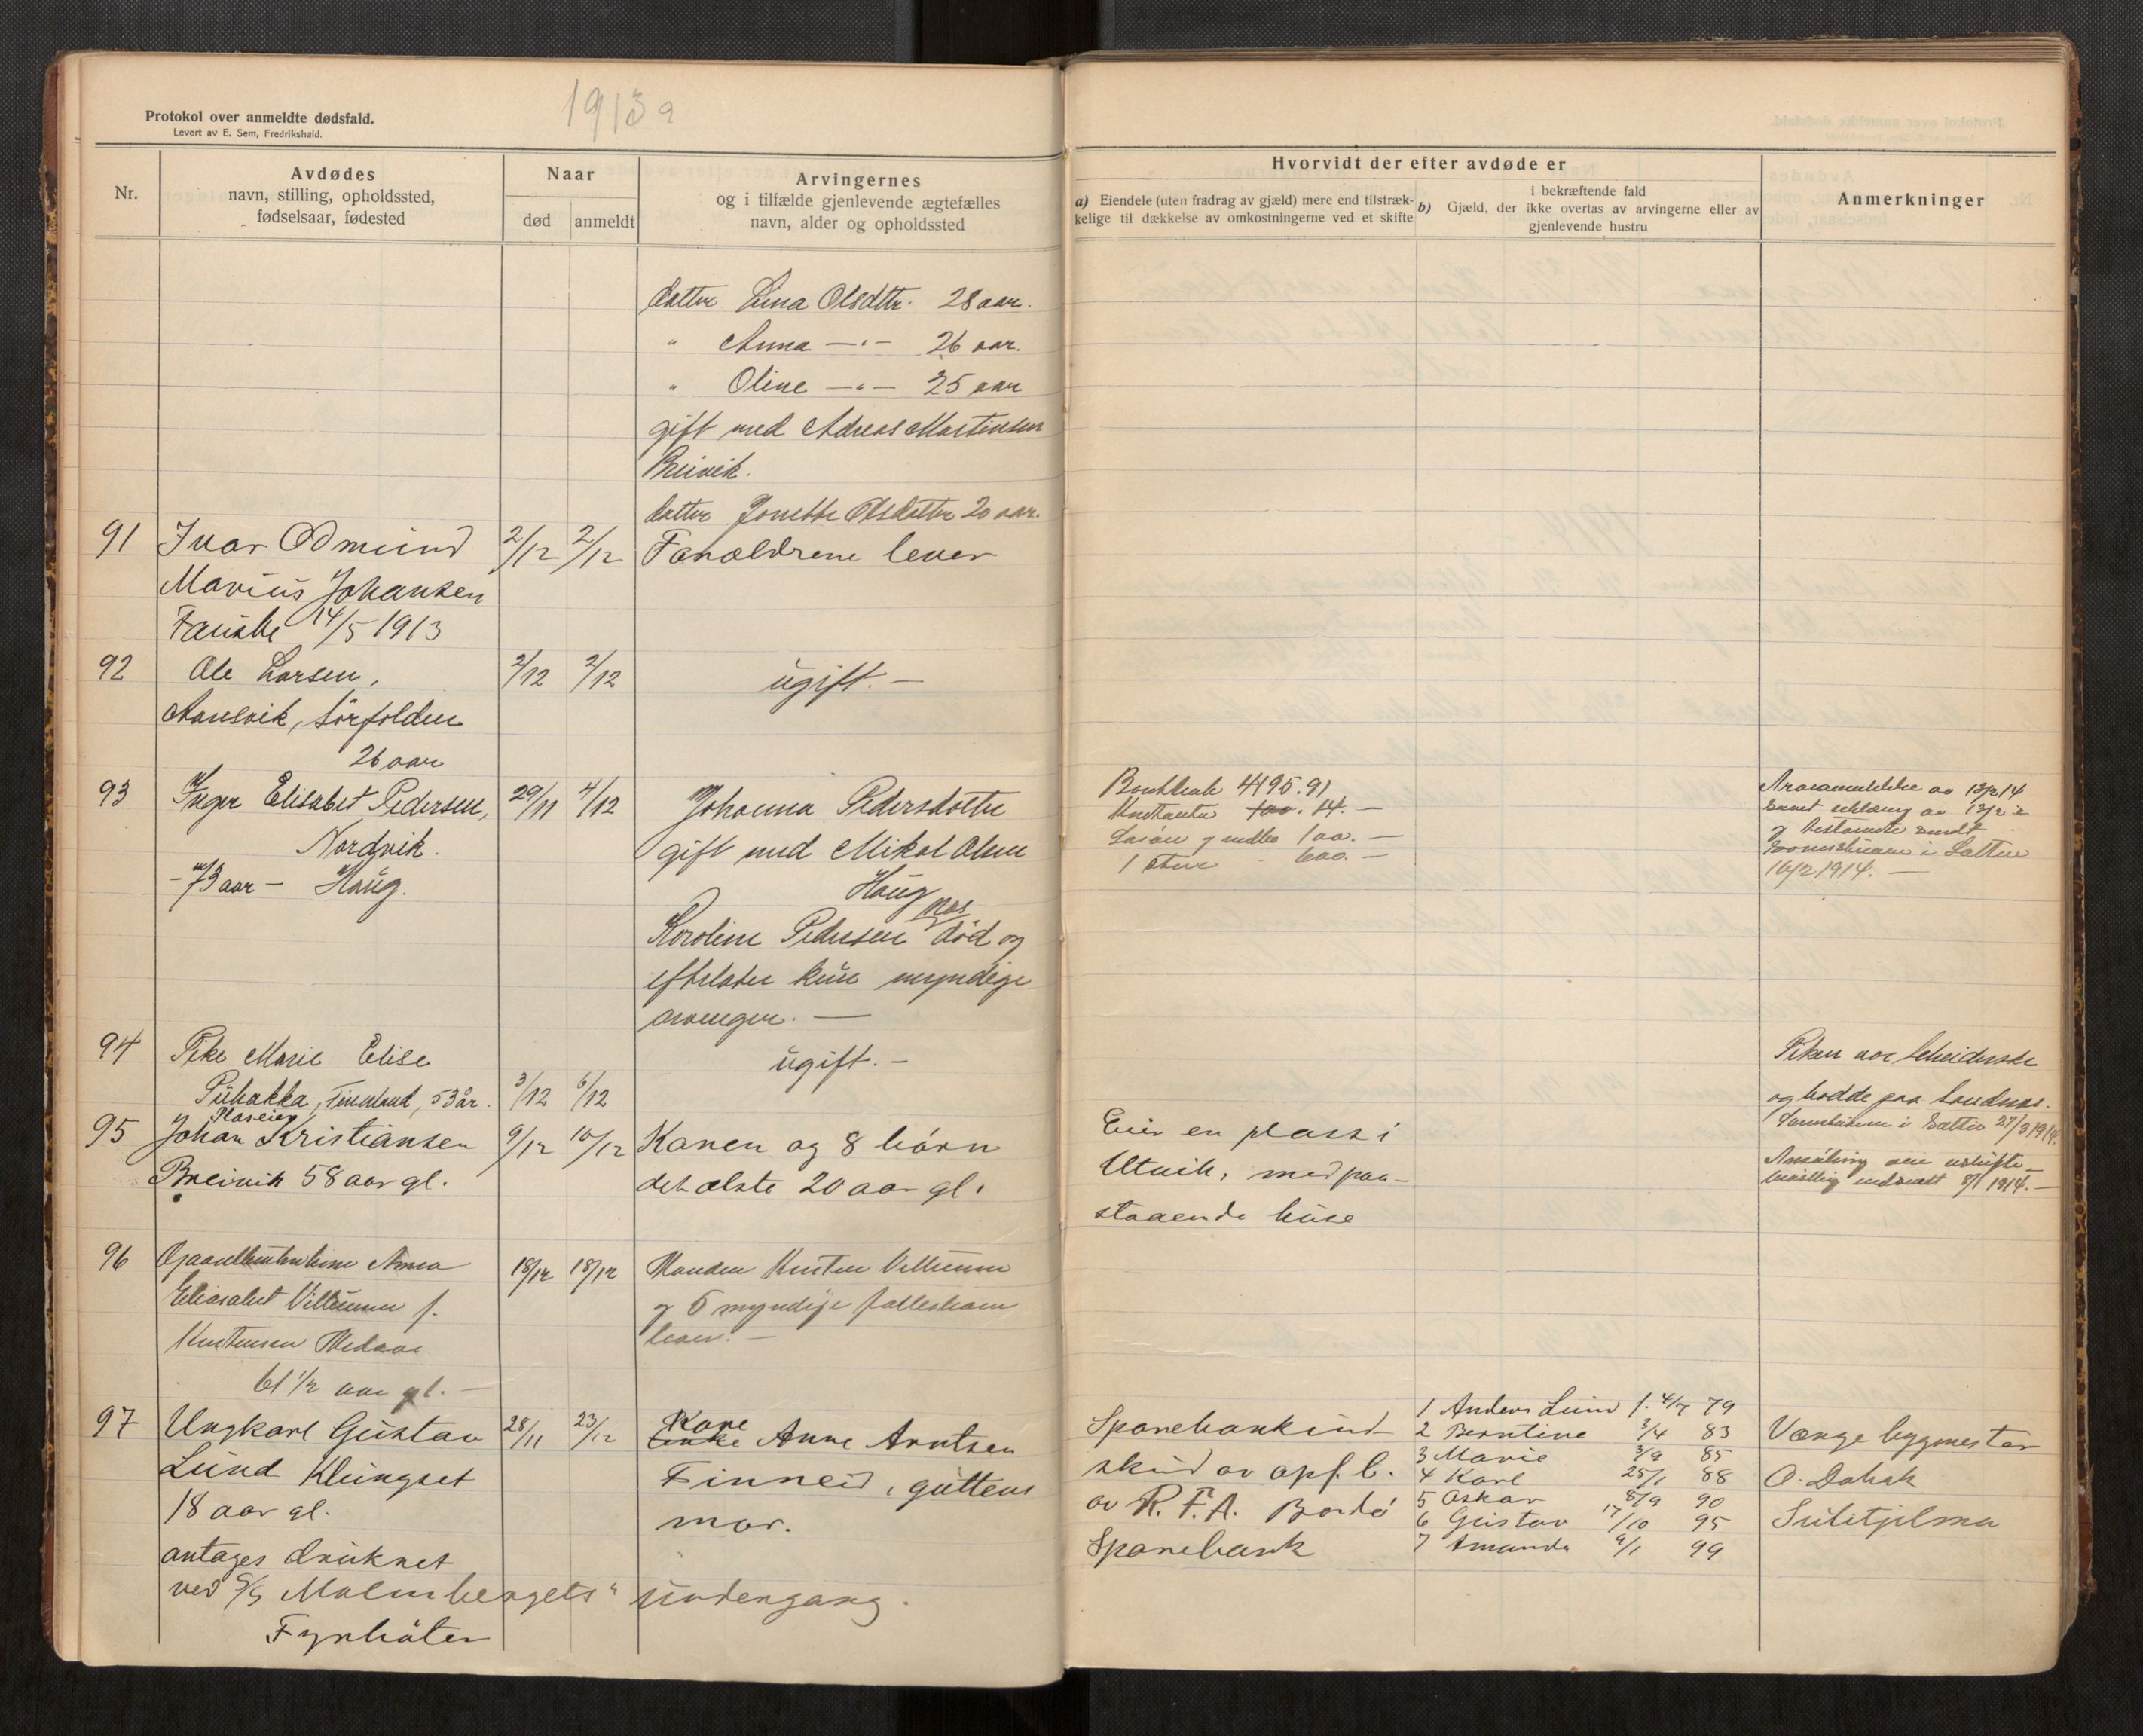 1913
Protokol over anmeldte dødsfald.
Levert av E. Sem, Fredrikshald.
Nr.
Avdødes
navn, stilling, opholdssted,
fødselsaar, fødested
Naar
død
anmeldt
Arvingernes
og i tilfælde gjenlevende ægtefælles
navn, alder og opholdssted
Hvorvidt der efter avdøde er
a) Eiendele (uten fradrag av gjæld) mere end tilstræk-
kelige til dækkelse av omkostningerne ved et skifte
i bekræftende fald
b) Gjæld, der ikke overtas av arvingerne eller av
gjenlevende hustru
Anmerkninger
datter Lina Olsdttr. 28 aar.
" Anna —"— 26 aar.
" Oline —"— 25 aar
gift med Adreas Martinsen
Breivik.
datter Jonette Olsdatter 20 aar.
91 Ivar Odmund 2/12 2/12 Forældrene lever
Marius Johansen
Fauske 14/5 1913
92 Ole Larsen, 2/12 2/12 ugift. —
Aansvik, Sørfolden
26 aar
93 Inger Elisabet Pedersen, 29/11 4/12 Johanna Pedersdotter
Nordvik. gift med Mikal Olsen
— 73 aar — Haug. Haug
Karoline Pedersen død og
efterlater kun myndige
arvinger. —
4495.91
14. —
100. —
600. —
13/2 14
av 13/2
og testamente sendt
i Salten
16/2 1914. —
94 Pike Marie Elise ugift. —
Puhakka, Finland, 53 år. 3/12 6/12
Piken var
og bodde paa Sandnes.
i Salten 27/3 1914.
95 Plaseier
Johan Kristiansen 9/12 10/12 Konen og 8 børn
Breivik 58 aar gl. det ælste 20 aar gl.
Eier en plass i
Utvik, med paa-
staaende huse
Ansøkning om uskifte-
bevilling indsendt 8/1 1914. —
96 Anna 18/12 18/12 Manden
Villumsen f. og 5 myndige fællesbarn
lever. —
61 1/2 aar gl. —
97 Ungkarl Gustav 28/11 23/12 Kone
Enke Anne Arntsen
Lund Klungset Finneid, guttens
18 aar gl. mor.
antages druknet
ved S/S "Malmbergets" undergang.
Fyrbøter
Sparebankind-
skud av opf. b.
av R. F. A. Bodø
Sparebank
1 Anders Lund f. 4/7 79
2 Berntine 3/4 83
3 Marie 3/9 85
4 Karl 25/1 88
5 Oskar 8/9 90
6 Gustav 17/10 95
7 Amanda 9/1 99
Værge bygmester
O. Dahak
Sulitjelma